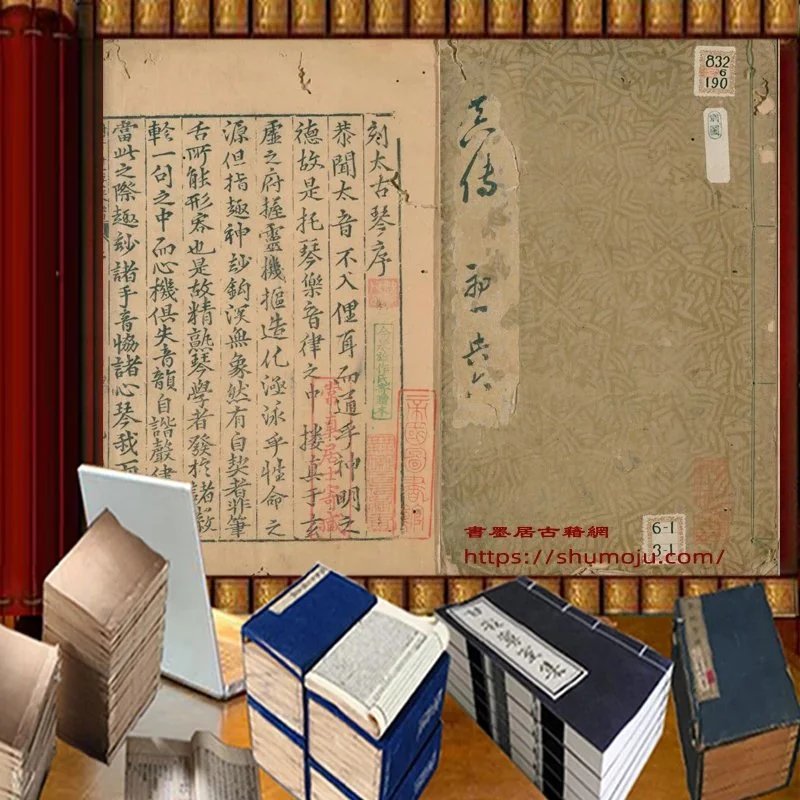 刻太古琴序
恭聞太音不入俚耳而通乎神明之
德故是托琴樂音律之中摟真于玄
虛之府握靈機摳造化涵泳乎性命之
源但指趣神玅鈎深無象然有自契者非筆
舌所能形容也是故精熟琴學者發於諸
軫一句之中而心機俱失音韻自諧聲律
當此之際趣玅諸手音協諸心琴我
真传
832
6
190
帝國圖書
6-1
3-1
書墨居古籍網
https://shumoju.com/